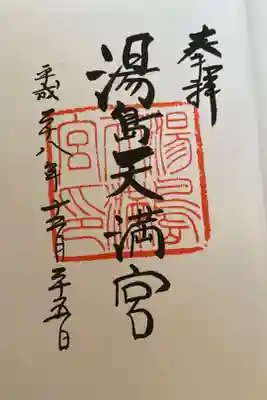 奉拝
湯島天満宮
平成二十八年 月二十五日
湯島天満宮印